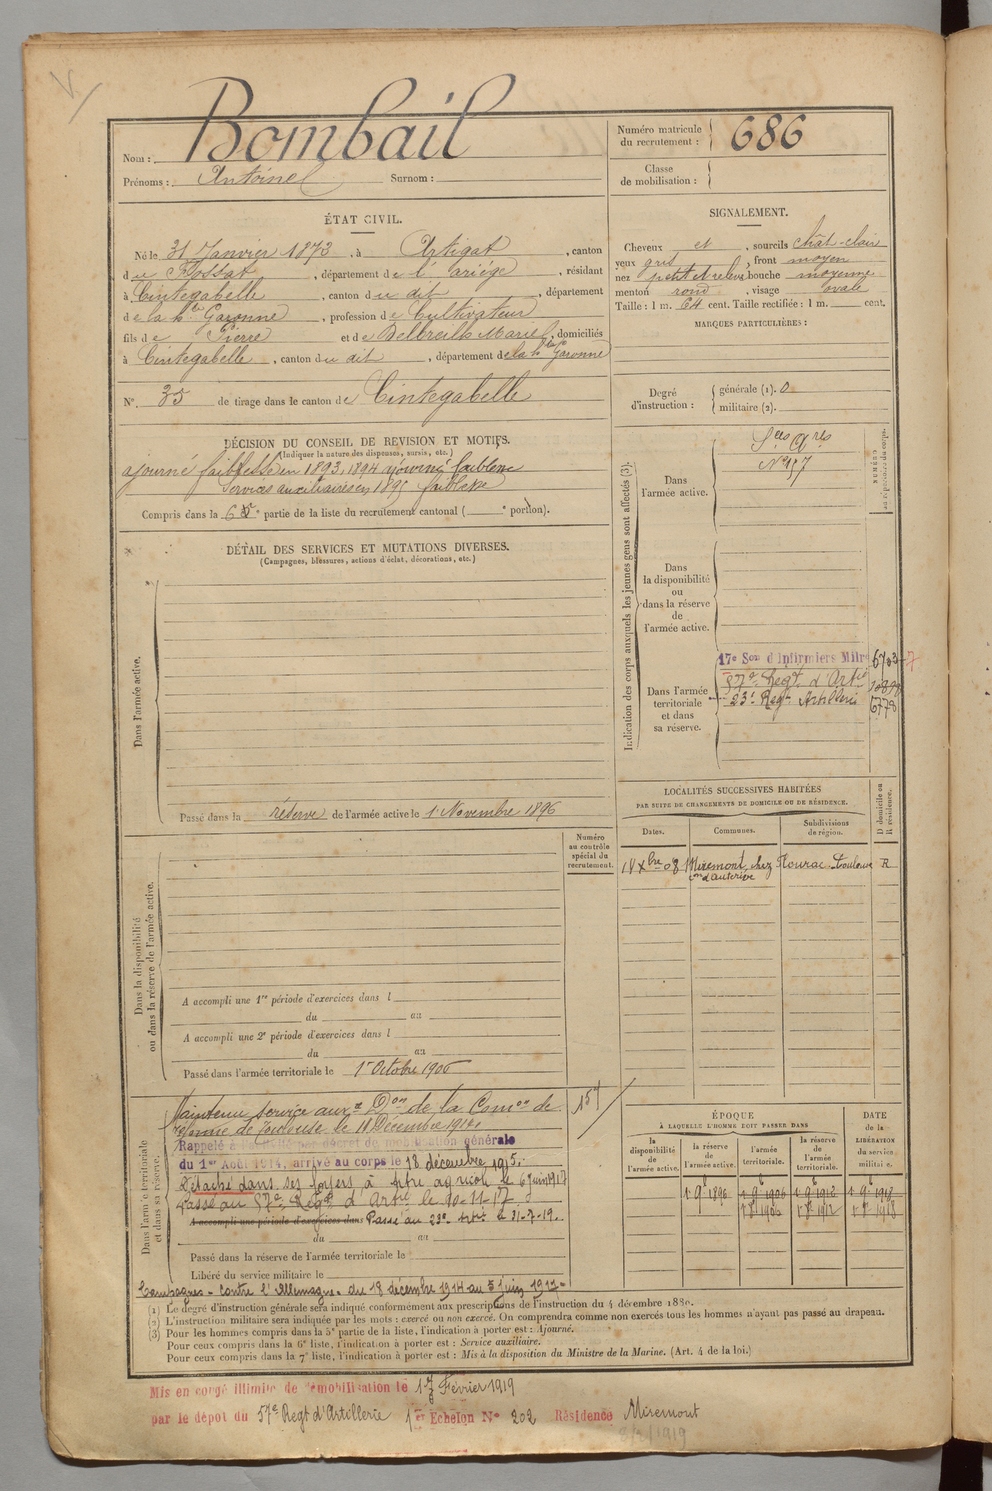 Nom : Bombail
Prénoms : Antoine Surnom :
Numéro matricule du recrutement : 686
Classe de mobilisation :
ÉTAT CIVIL.
Né le 31 Janvier 1873, à Artigat, canton
du Fossat, département de l'ariége, résidant
à Cintegabelle, canton du dit, département
de la hte Garonne, profession de Cultivateur
fils de Pierre et de Delbreilh Marie, domiciliés
à Cintegabelle, canton du dit, département de la hte Garonne
N° 35 de tirage dans le canton de Cintegabelle
SIGNALEMENT.
Cheveux et, sourcils chât-clair
yeux gris, front moyen
nez petit et relevé, bouche moyenne
menton rond, visage ovale
Taille : 1 m. 64 cent. Taille rectifiée : 1 m. cent.
MARQUES PARTICULIÈRES :
Degré d'instruction : générale (1). 0
militaire (2).
DÉCISION DU CONSEIL DE REVISION ET MOTIFS.
(Indiquer la nature des dispenses, sursis, etc.)
ajourné faiblesse en 1893, 1894 ajourné faiblesse
Services auxiliaires en 1895 faiblesse
Compris dans la 6e partie de la liste du recrutement cantonal ( e portion).
DÉTAIL DES SERVICES ET MUTATIONS DIVERSES.
(Campagnes, blessures, actions d'éclat, décorations, etc.)
Dans l'armée active.
Passé dans la réserve de l'armée active le 1 Novembre 1896
Indication des corps auxquels les jeunes gens sont affectés (3).
NUMÉRO au répertoire du corps.
Dans l'armée active.
Sces Ares
N° 157
Dans la disponibilité ou dans la réserve de l'armée active.
Dans l'armée territoriale et dans sa réserve.
17e Son d'Infirmiers Milres
57e Regt d'Artie
23e Regt Artillerie 6778
LOCALITÉS SUCCESSIVES HABITÉES
PAR SUITE DE CHANGEMENTS DE DOMICILE OU DE RÉSIDENCE.
Dates. Communes. Subdivisions de région. D domicile ou R résidence.
Xbre 08 Miremont, chez Flourac Toulouse R
con d'Auterive
Numéro au contrôle spécial du recrutement.
Dans la disponibilité ou dans la réserve de l'armée active.
A accompli une 1re période d'exercices dans l
du au
A accompli une 2e période d'exercices dans l
du au
Passé dans l'armée territoriale le 1er Octobre 1906
Dans l'armée territoriale et dans sa réserve.
Maintenu service auxre Don de la Comon de
réforme de Toulouse le 11 Décembre 1914.
Rappelé à décret de mobilisation générale
du 1er Août 1914, arrivé au corps le 18 décembre 1915.
Détaché dans ses foyers à titre agricole le 6 juin 1917
Passé au 57e Regt d'Artie le 10-11-17
A accompli une période d'exercices dans Passé au 23e Artie le 31-7-19.
du au
Passé dans la réserve de l'armée territoriale le
Libéré du service militaire le
Campagnes - contre l'Allemagne - du 18 décembre 1914 au 5 juin 1917 -
ÉPOQUE
À LAQUELLE L'HOMME DOIT PASSER DANS
DATE de la LIBÉRATION du service militaire.
la disponibilité de l'armée active. la réserve de l'armée active. l'armée territoriale. la réserve de l'armée territoriale.
1 9 1896 1 9 1906 1 9 1912 1 9 1918
(1) Le degré d'instruction générale sera indiqué conformément aux prescriptions de l'instruction du 4 décembre 1889.
(2) L'instruction militaire sera indiquée par les mots : exercé ou non exercé. On comprendra comme non exercés tous les hommes n'ayant pas passé au drapeau.
(3) Pour les hommes compris dans la 5e partie de la liste, l'indication à porter est : Ajourné.
Pour ceux compris dans la 6e liste, l'indication à porter est : Service auxiliaire.
Pour ceux compris dans la 7e liste, l'indication à porter est : Mis à la disposition du Ministre de la Marine. (Art. 4 de la loi.)
Mis en congé illimité de démobilisation le Février 1919
par le dépôt du 57e Regt d'Artillerie 1er Echelon N° 202 Résidence Miremont
8/2/1919